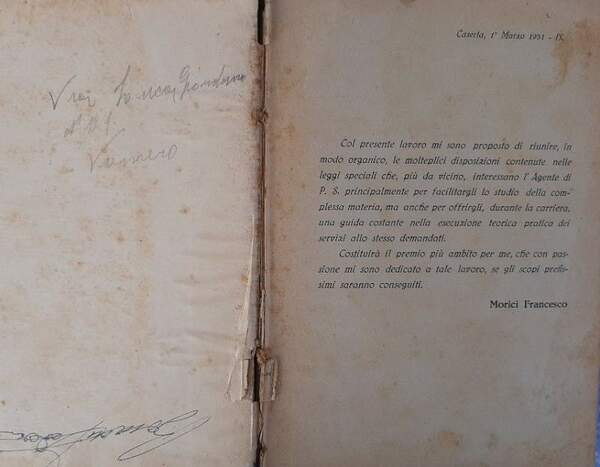 Via Luca Giordano
Vomero
Caserta, 1° Marzo 1931 - IX.
Col presente lavoro mi sono proposto di riunire, in
modo organico, le molteplici disposizioni contenute nelle
leggi speciali che, più da vicino, interessano l'Agente di
P. S. principalmente per facilitargli lo studio della com-
plessa materia, ma anche per offrirgli, durante la carriera,
una guida costante nella esecuzione teorica pratica dei
servizi allo stesso demandati.
Costituirà il premio più ambito per me, che con pas-
sione mi sono dedicato a tale lavoro, se gli scopi prefis-
simi saranno conseguiti.
Morici Francesco